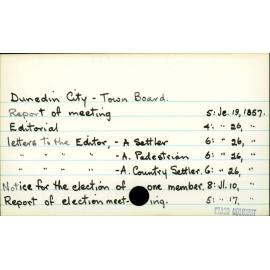 Dunedin City - Town Board.
Report of meeting 5: Je. 19, 1857.
Editorial 4: " 26, "
letters to the Editor, - A Settler 6: " 26, "
" " " " - A. Pedestrian 6: " 26, "
" " " " - A. Country Settler. 6: " 26, "
Notice for the election of one member. 8: Jl. 10, "
Report of election meeting. 5: " 17, "